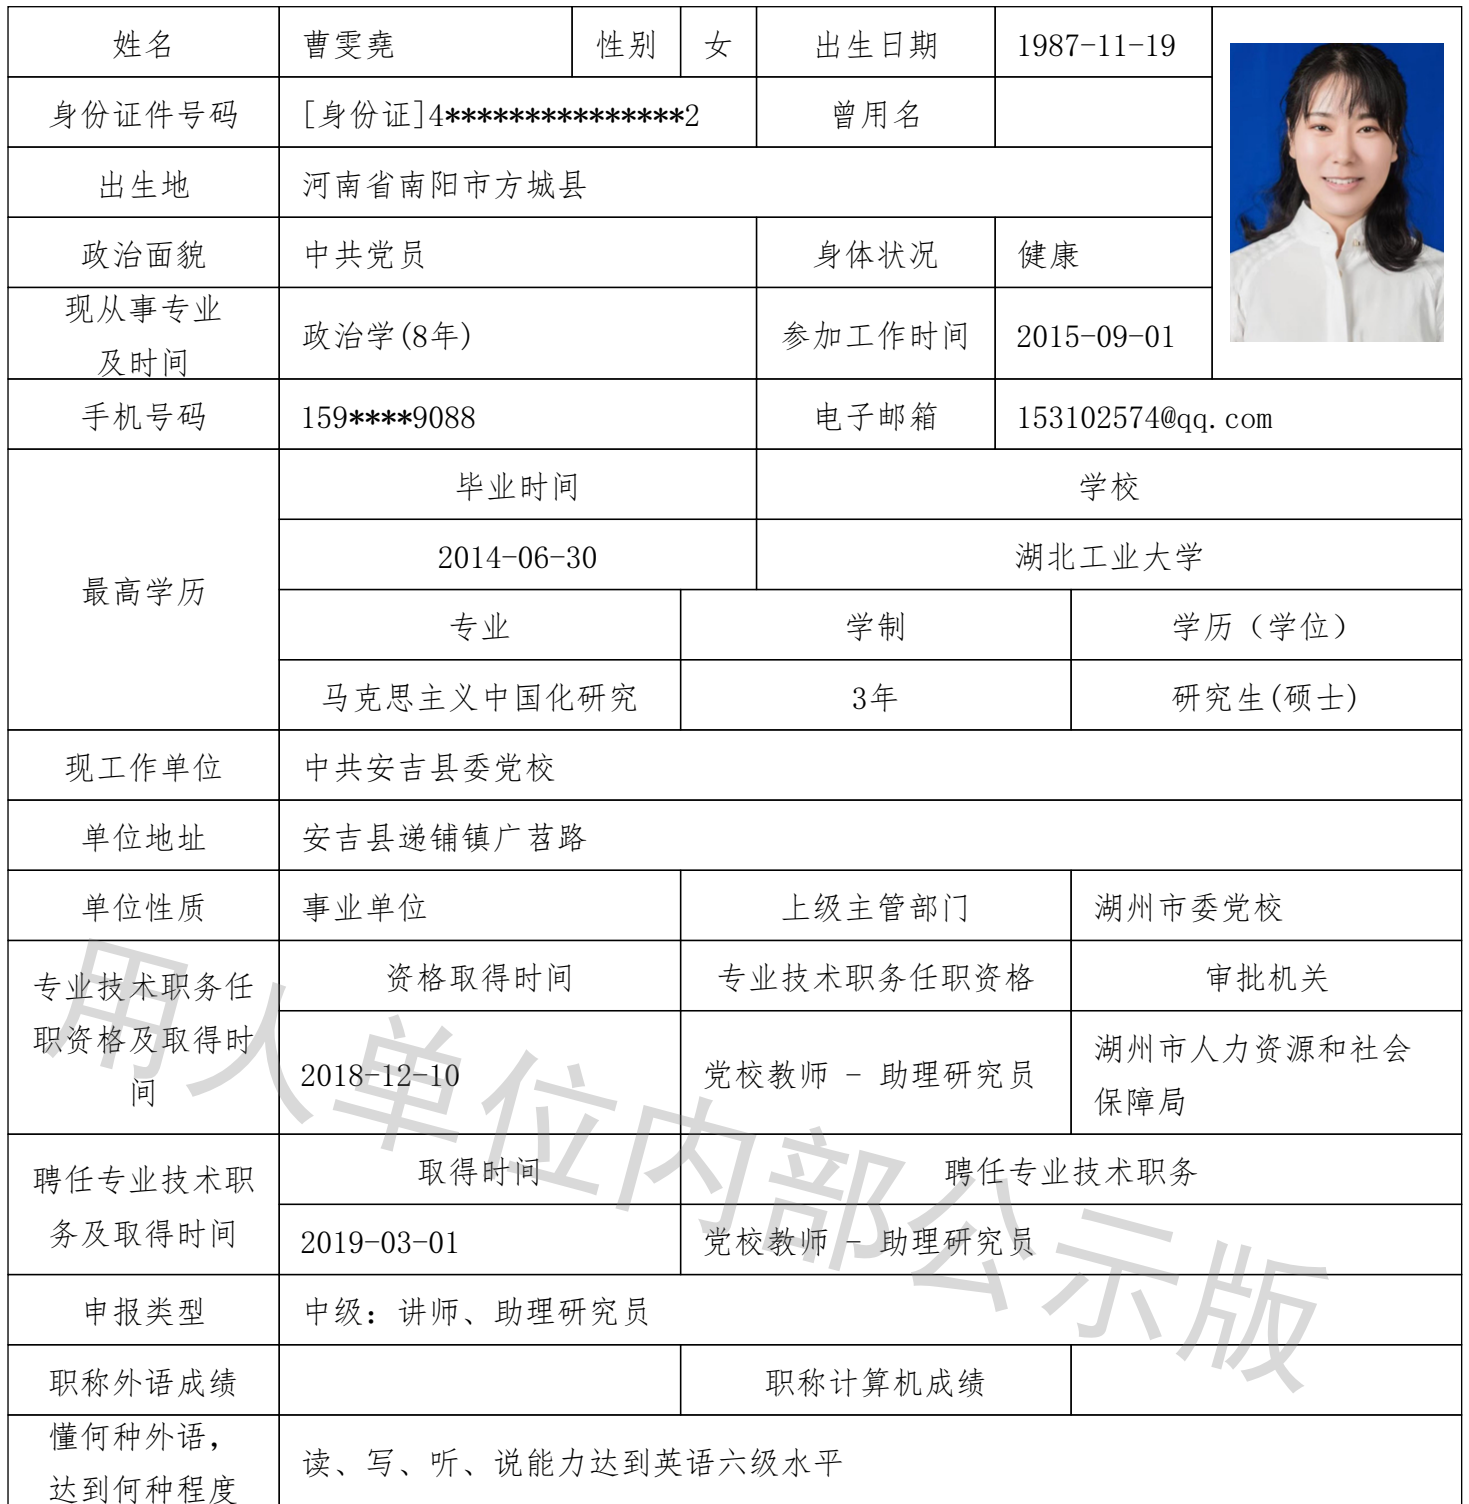 姓名 曹雯尧 性别 女 出生日期 1987-11-19
身份证件号码 [身份证]4***************2 曾用名
出生地 河南省南阳市方城县
政治面貌 中共党员 身体状况 健康
现从事专业
及时间 政治学(8年) 参加工作时间 2015-09-01
手机号码 159****9088 电子邮箱 153102574@qq.com
最高学历
毕业时间 学校
2014-06-30 湖北工业大学
专业 学制 学历（学位）
马克思主义中国化研究 3年 研究生(硕士)
现工作单位 中共安吉县委党校
单位地址 安吉县递铺镇广苕路
单位性质 事业单位 上级主管部门 湖州市委党校
专业技术职务任
职资格及取得时
间
资格取得时间 专业技术职务任职资格 审批机关
2018-12-10 党校教师 - 助理研究员 湖州市人力资源和社会
保障局
聘任专业技术职
务及取得时间
取得时间 聘任专业技术职务
2019-03-01 党校教师 - 助理研究员
申报类型 中级：讲师、助理研究员
职称外语成绩 职称计算机成绩
懂何种外语，
达到何种程度 读、写、听、说能力达到英语六级水平
用人单位内部公示版